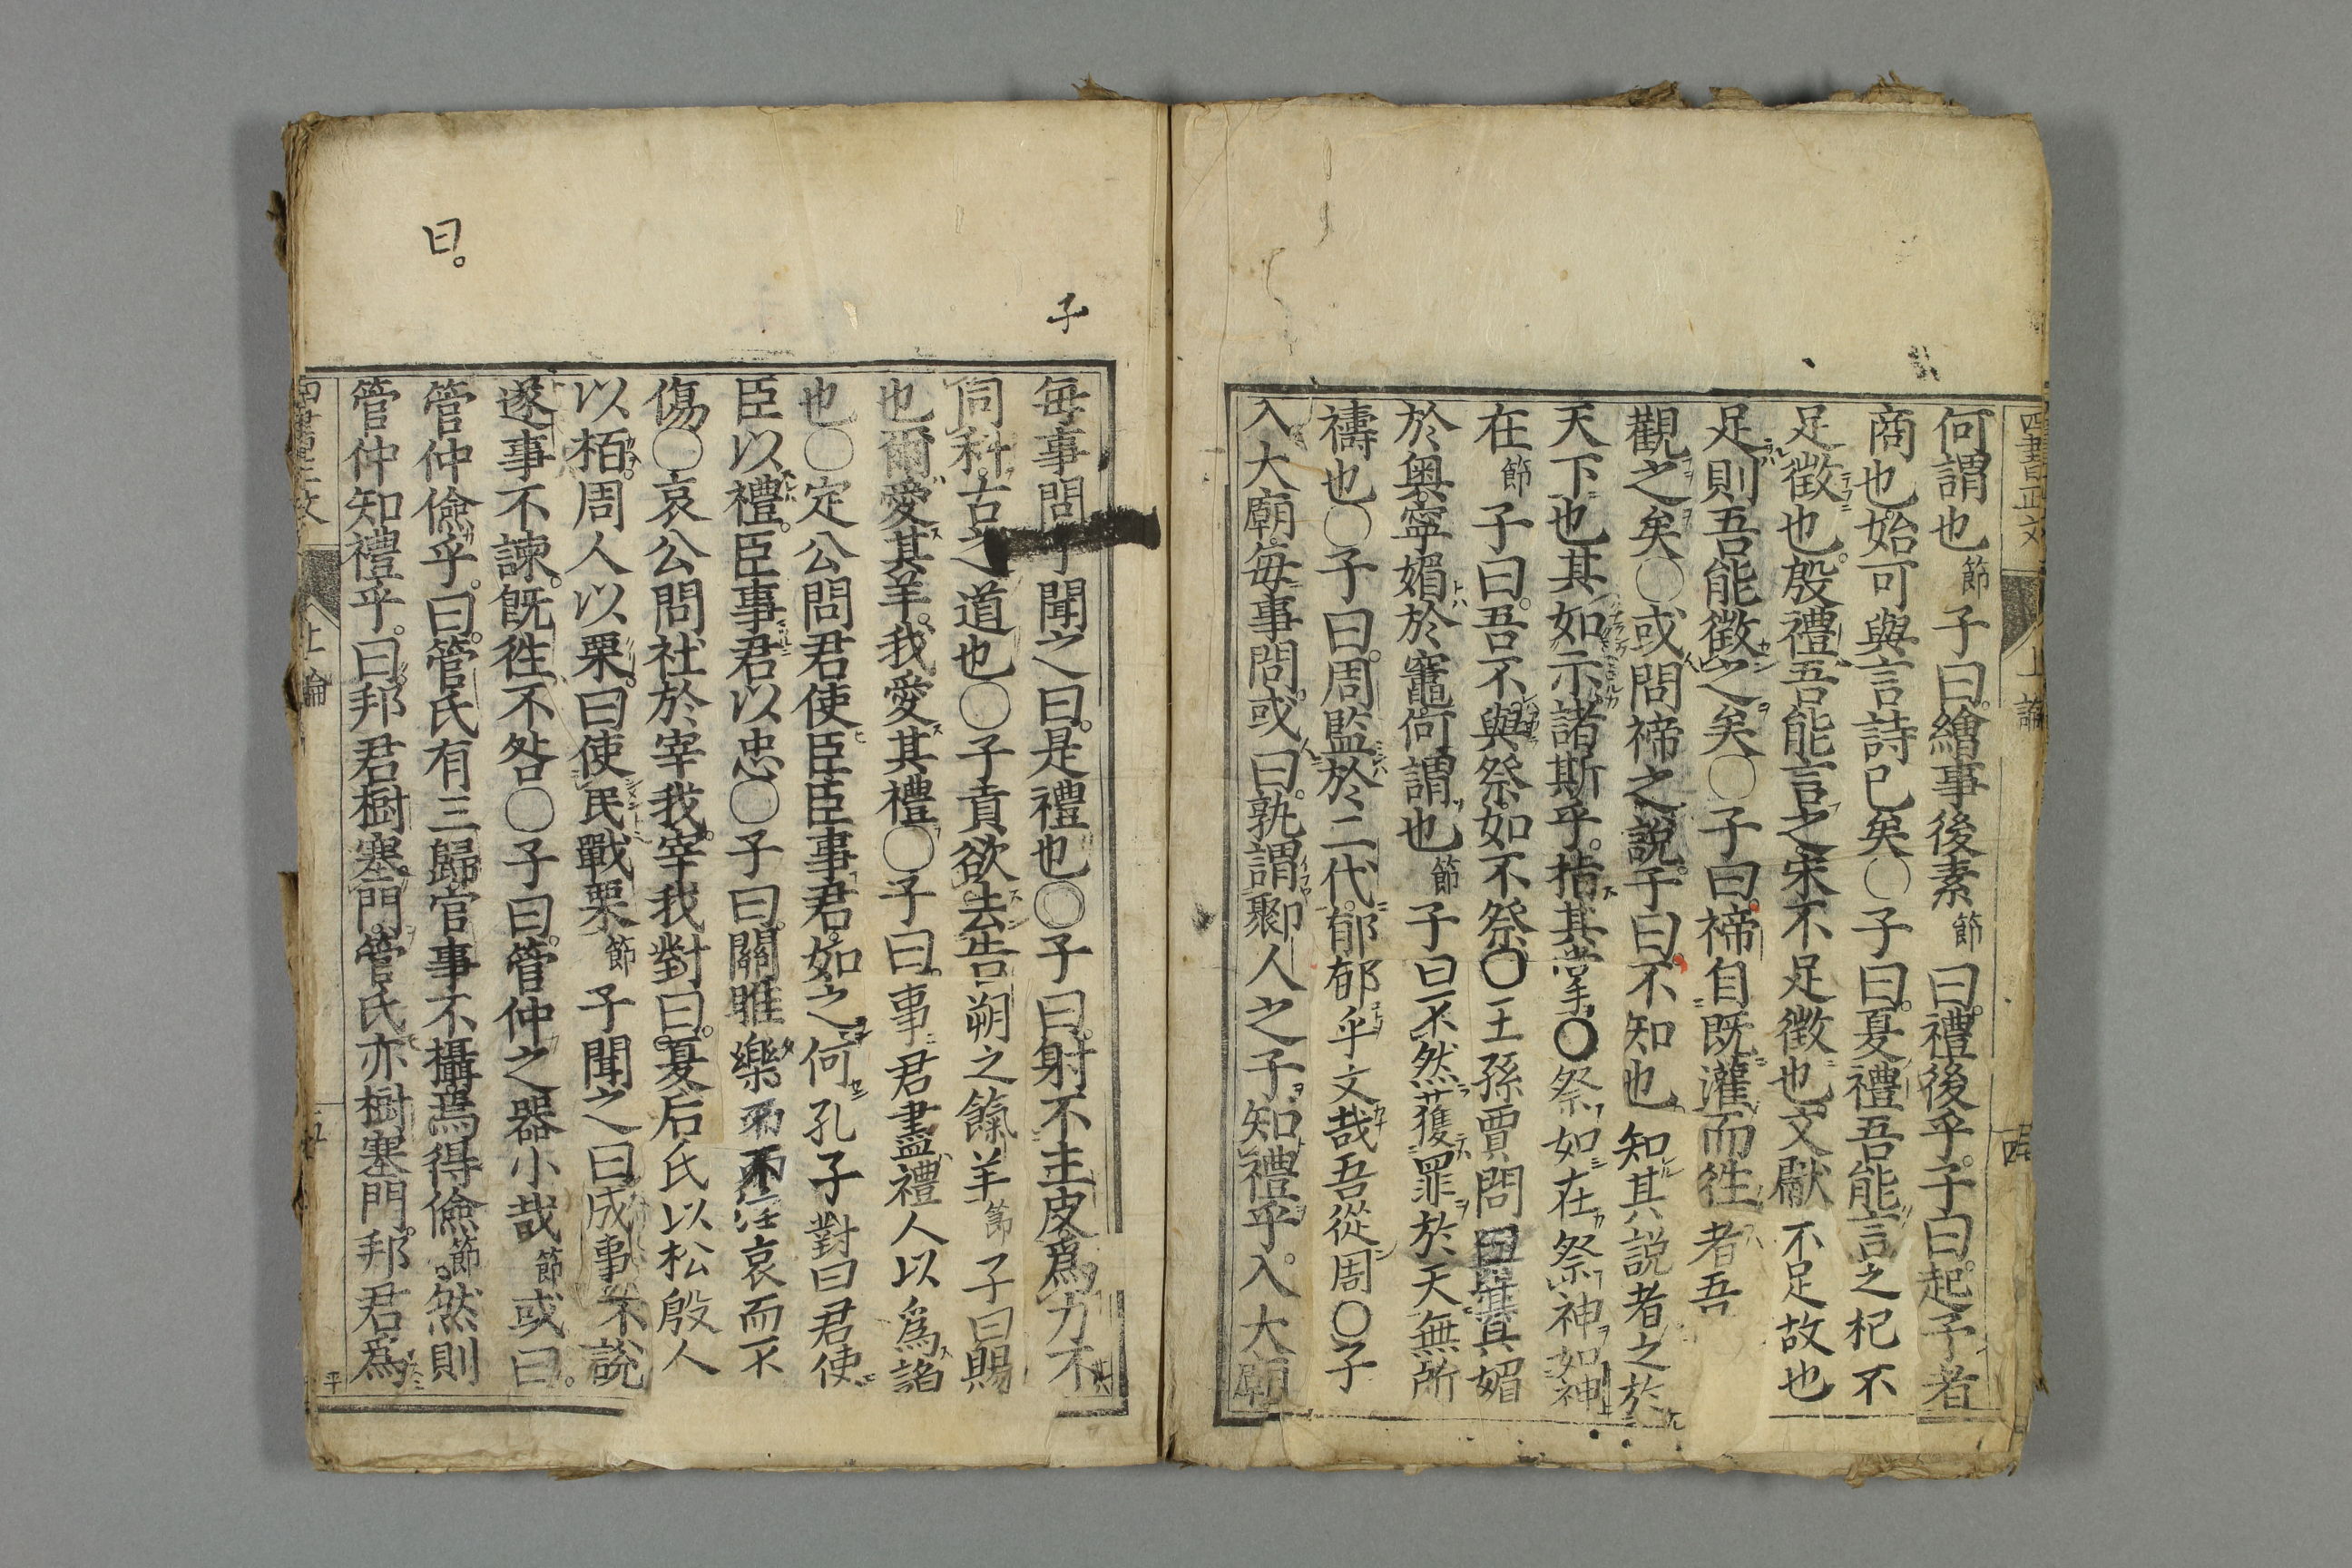 四書正文
上論
四
何謂也節子曰繪事後素節曰禮後乎子曰起予者
商也始可與言詩已矣〇子曰夏禮吾能言之杞不
足徵也殷禮吾能言之宋不足徵也文獻不足故也
足則吾能徵之矣〇子曰禘自既灌而徃者吾
觀之矣〇或問禘之說子曰不知也知其說者之於
天下也其如示諸斯乎指其掌〇祭如在祭神如神
在節子曰吾不與祭如不祭〇王孫賈問曰與其媚
於奧寧媚於竈何謂也節子曰不然獲罪於天無所
禱也〇子曰周監於二代郁郁乎文哉吾從周〇子
入大廟每事問或曰孰謂鄹人之子知禮乎入大廟
子
每事問子聞之曰是禮也〇子曰射不主皮爲力不
同科古之道也〇子貢欲去告朔之餼羊節子曰賜
也爾愛其羊我愛其禮〇子曰事君盡禮人以爲諂
也〇定公問君使臣臣事君如之何孔子對曰君使
臣以禮臣事君以忠〇子曰關雎樂而不淫哀而不
傷〇哀公問社於宰我宰我對曰夏后氏以松殷人
以栢周人以栗曰使民戰栗節子聞之曰成事不說
遂事不諫旣徃不咎〇子曰管仲之器小哉節或曰
曰
管仲儉乎曰管氏有三歸官事不攝焉得儉節然則
管仲知禮乎曰邦君樹塞門管氏亦樹塞門邦君爲
四書正文
上論
五